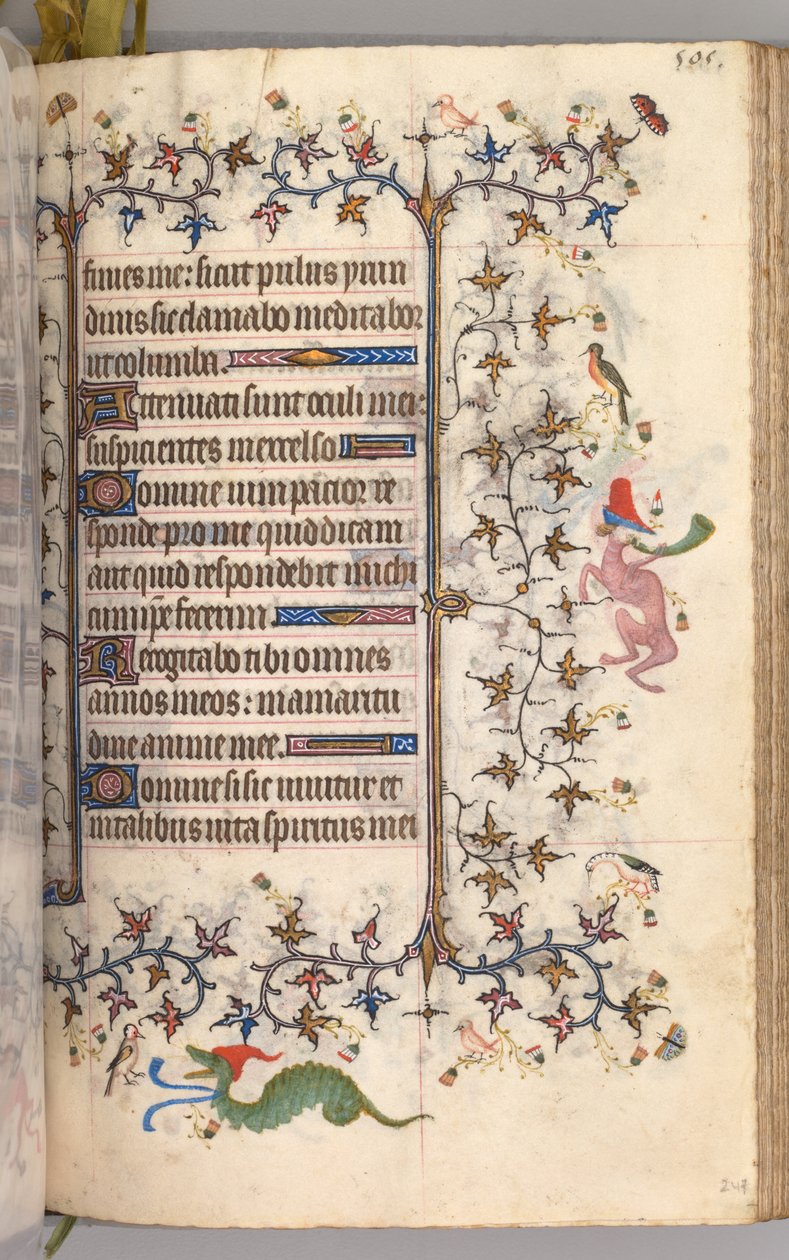 505.
fimes me: sicut pulus yrun
dinis sic clamabo meditabor
ut columba.
Attenuati sunt oculi mei:
suspicientes in excelso
Domine vim pacior re
sponde pro me quid dicam
aut quid respondebit michi
cum ipse fecerim
Recogitabo tibi omnes
annos meos: in amaritu
dine anime mee.
Domine si sic vivitur et
in talibus vita spiritus mei
247